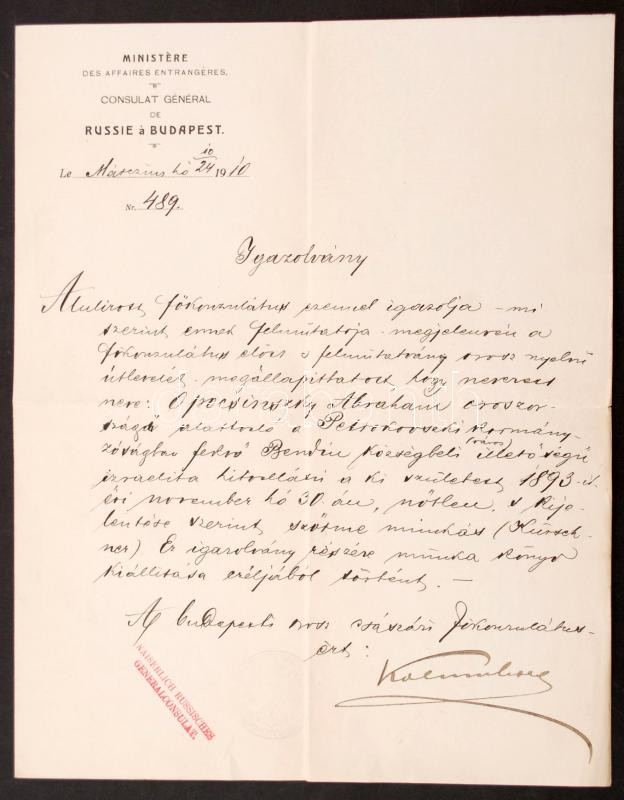 MINISTÈRE
DES AFFAIRES ENTRANGÈRES.
CONSULAT GÉNÉRAL
DE
RUSSIE à BUDAPEST.
Le Március hó 10/24 1910
Nr. 489.
Igazolvány
Alulirott főkonzulátus ezennel igazolja - mi
szerint ennek felmutatója - megjelenvén a
főkonzulátus előtt s felmutatván orosz nyelvü
útlevelét - megállapittatott hogy nevezett
neve: Opocsinszky Abraham oroszor-
szági alattvaló a Petrokovszki kormány-
zóságban fekvő Bendin (város) községbeli illetőségü
izraelita hitvallásu a ki született 1893-ik
évi november hó 30.-án, nőtlen, s kije-
lentése szerint szőrme munkás (Kürsch-
ner). Ez igazolvány részére munka könyv
kiállitása céljából történt. —
A budapesti orosz császári főkonzulátus-
ért:
KAISERLICH RUSSISCHES
GENERALCONSULAT.